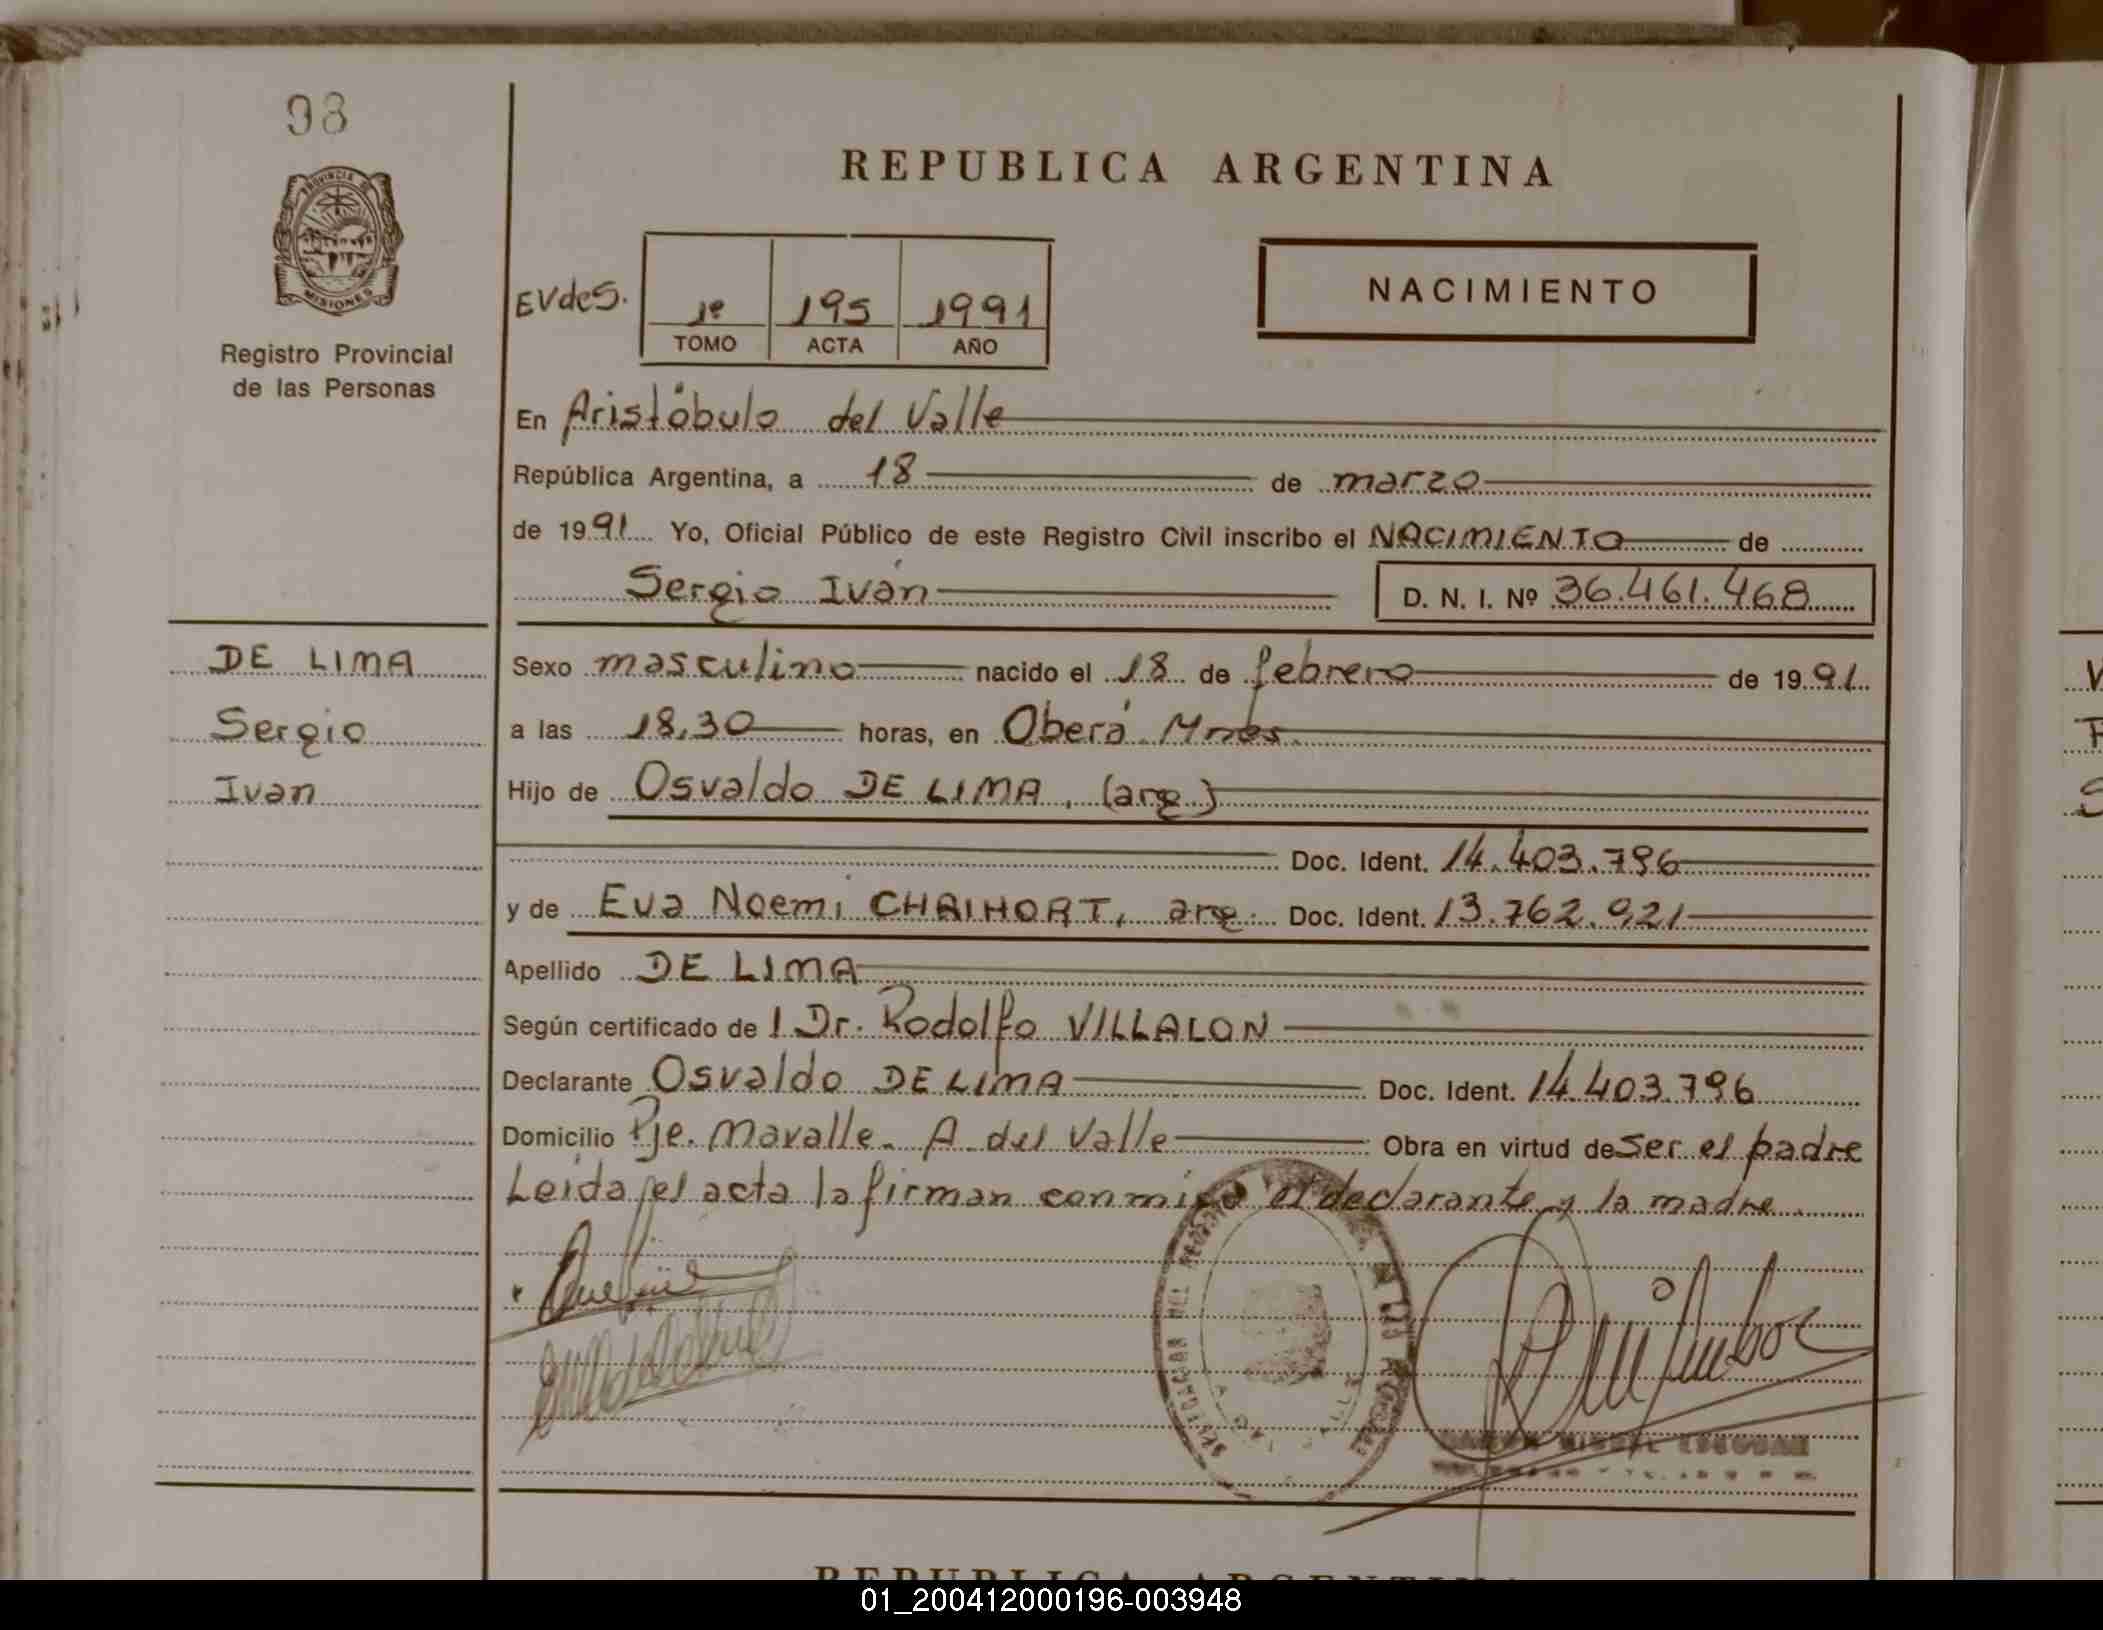 98
PROVINCIA DE
MISIONES
Registro Provincial
de las Personas
DE LIMA
Sergio
Ivan
REPUBLICA ARGENTINA
EVdeS. 1º 195 1991
TOMO ACTA AÑO
NACIMIENTO
En Aristóbulo del Valle
República Argentina, a 18 de marzo
de 1991 Yo, Oficial Público de este Registro Civil inscribo el NACIMIENTO de
Sergio Iván D. N. I. Nº 36.461.468
Sexo masculino nacido el 18 de febrero de 1991
a las 18,30 horas, en Oberá Mnes.
Hijo de Osvaldo DE LIMA, (arg)
Doc. Ident. 14.403.796
y de Eva Noemi CHAIHORT, arg. Doc. Ident. 13.762.921
Apellido DE LIMA
Según certificado de l Dr. Rodolfo VILLALON
Declarante Osvaldo DE LIMA Doc. Ident. 14.403.796
Domicilio Pje. Mavalle. A. del Valle Obra en virtud de Ser el padre
Leida el acta la firman conmigo el declarante y la madre.
REPUBLICA ARGENTINA
01_200412000196-003948